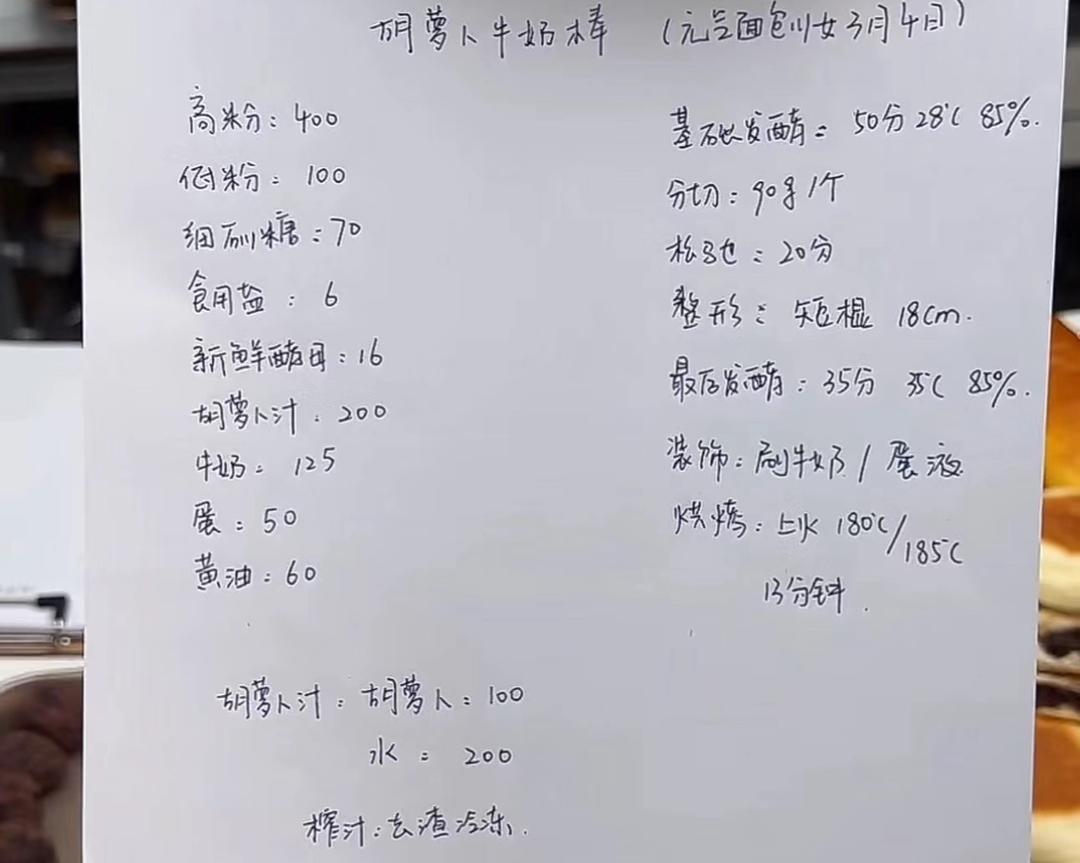 胡萝卜牛奶棒 (元气面包少女3月4日)
高粉: 400
低粉: 100
细砂糖: 70
食用盐: 6
新鲜酵母: 16
胡萝卜汁: 200
牛奶: 125
蛋: 50
黄油: 60
基础发酵: 50分 28℃ 85%.
分切: 90g 1个
松弛: 20分
整形: 短棍 18cm.
最后发酵: 35分 35℃ 85%.
装饰: 刷牛奶 / 蛋液
烘烤: 上火 180℃/185℃
13分钟.
胡萝卜汁: 胡萝卜: 100
水: 200
榨汁: 去渣冷冻.